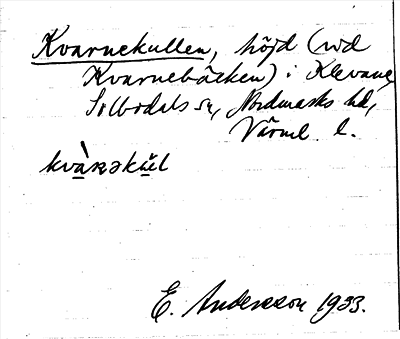 Kvarnekullen, höjd (vid
Kvarnebäcken) i Klevane,
Silbodals sn, Nordmarks hd,
Värml. l.
kvàʀəkŭl
E. Andersson 1933.